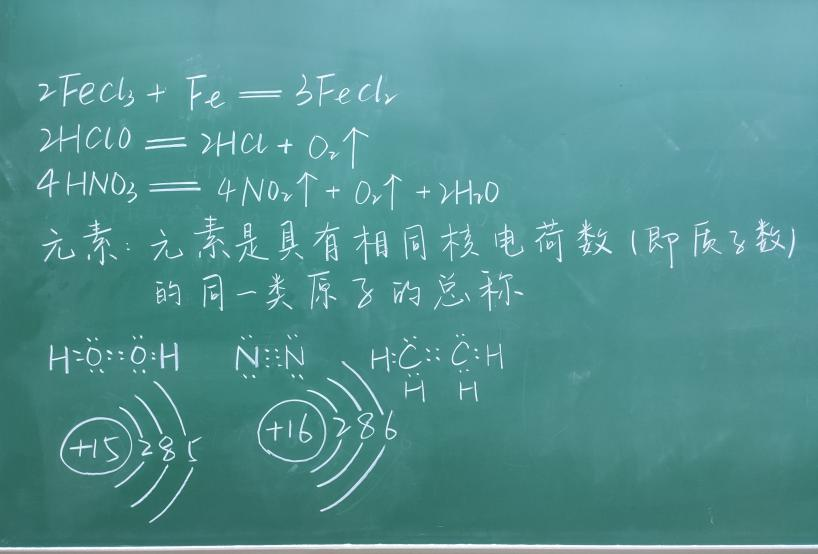 2FeCl₃ + Fe = 3FeCl₂
2HClO = 2HCl + O₂↑
4HNO₃ = 4NO₂↑ + O₂↑ + 2H₂O
元素: 元素是具有相同核电荷数(即质子数)
的同一类原子的总称
H:O::O:H N:::N H:C::C:H
H H
+15 2 8 5 +16 2 8 6